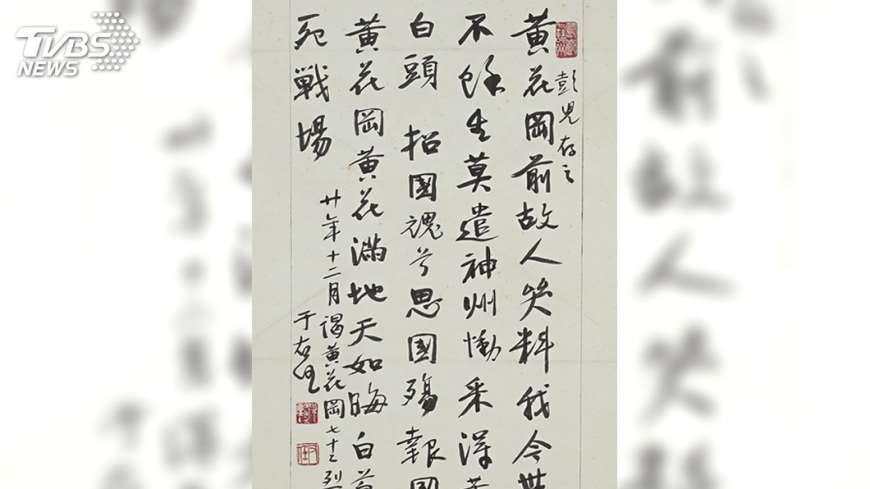 TVBS
NEWS
彭兒存之
黃花岡前故人哭料我今世
不餘生莫遣神州慟采得
白頭 招國魂兮思國殤報國
黃花岡黃花滿地天如晦白
死戰場
廿年十二月謁黃花岡七十二烈
于右任